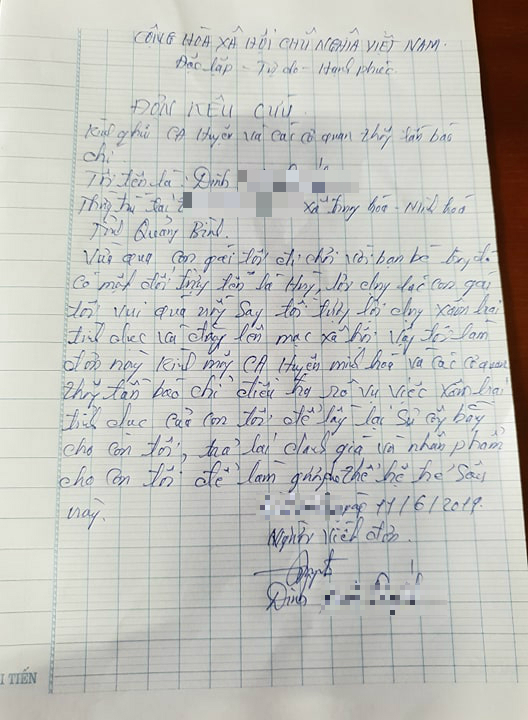 CÔNG HÒA XÃ HÔI CHŨ NGHĨA VIÊT NAM.
Đôc lâp - Tự do - Hạnh phúc.
ĐƠN KÊU CỨU.
Kính gửi CA Huyên và các cơ quan thông tấn báo
chí
Tôi tên là: Đinh
Thường trú tại xã trung hóa - Minh hoá
Tỉnh Quảng Bình.
Vừa qua con gái tôi đi chơi với bạn bè trong đó
có một đối tên là Huy, con gái
tôi vui quá say tôi xâm hại
tình dục và đăng lên mạc xã hôi vậy tôi làm
đơn này Kính mong CA Huyên minh hoá và các cơ quan
thông tấn báo chí điều tra rõ vụ viêc xâm hại
tình dục của con tôi để lấy lại sự công bằng
cho con tôi, trả lại danh giá và nhân phẩm
cho con tôi để làm thế hệ trẻ sau
này.
ngày 11/6/2019.
Người viết đơn.
Đinh
TIẾN